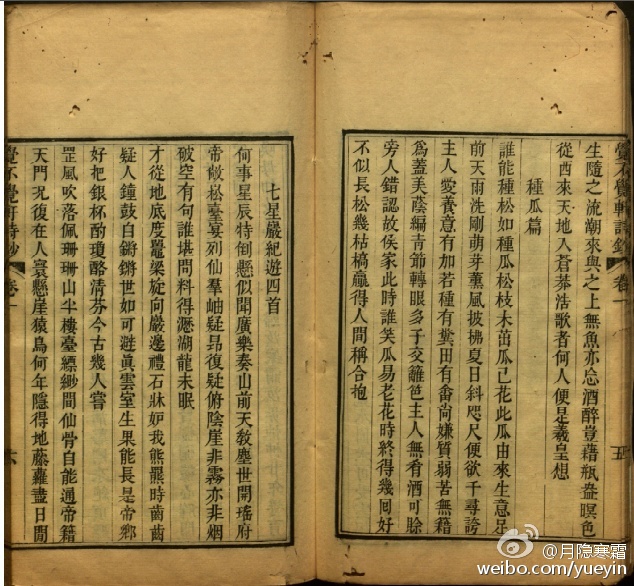 覺不覺軒詩鈔 卷一
生隨之流潮來與之上無魚亦忘酒醉豈藉瓶盎暝色
從西來天地入蒼莽浩歌者何人便是羲皇想
種瓜篇
誰能種松如種瓜松枝未茁瓜已花此瓜由來生意足
前天雨洗剛萌芽薰風披拂夏日斜咫尺便欲千尋誇
主人愛養意有加若種有糞田有畬尚嫌質弱苦無藉
為蓋美蔭編青節轉眼多子交籬笆主人無肴酒可賒
旁人錯認故侯家此時誰笑瓜易老花時終得幾回好
不似長松幾枯槁贏得人間稱合抱
五
七星巖紀遊四首
何事星辰特倒懸似聞廣樂奏山前天教塵世開瑤府
帝敞松臺宴列仙羣岫疑昂復疑俯陰崖非霧亦非烟
破空有句誰堪問料得瀝湖龍未眠
才從地底度鼉梁旋向巖邊禮石牀妒我熊羆時齒齒
疑人鐘鼓自鏘鏘世如可避真雲室生果能長是帝鄉
好把銀杯酌瓊酪清芬今古幾人嘗
罡風吹落佩珊珊山半樓臺縹緲間仙骨自能通帝籍
天門況復在人寰懸崖猿鳥何年隱得地藤蘿盡日閒
覺不覺軒詩鈔 卷一
六
@月隐寒霜
weibo.com/yueyin